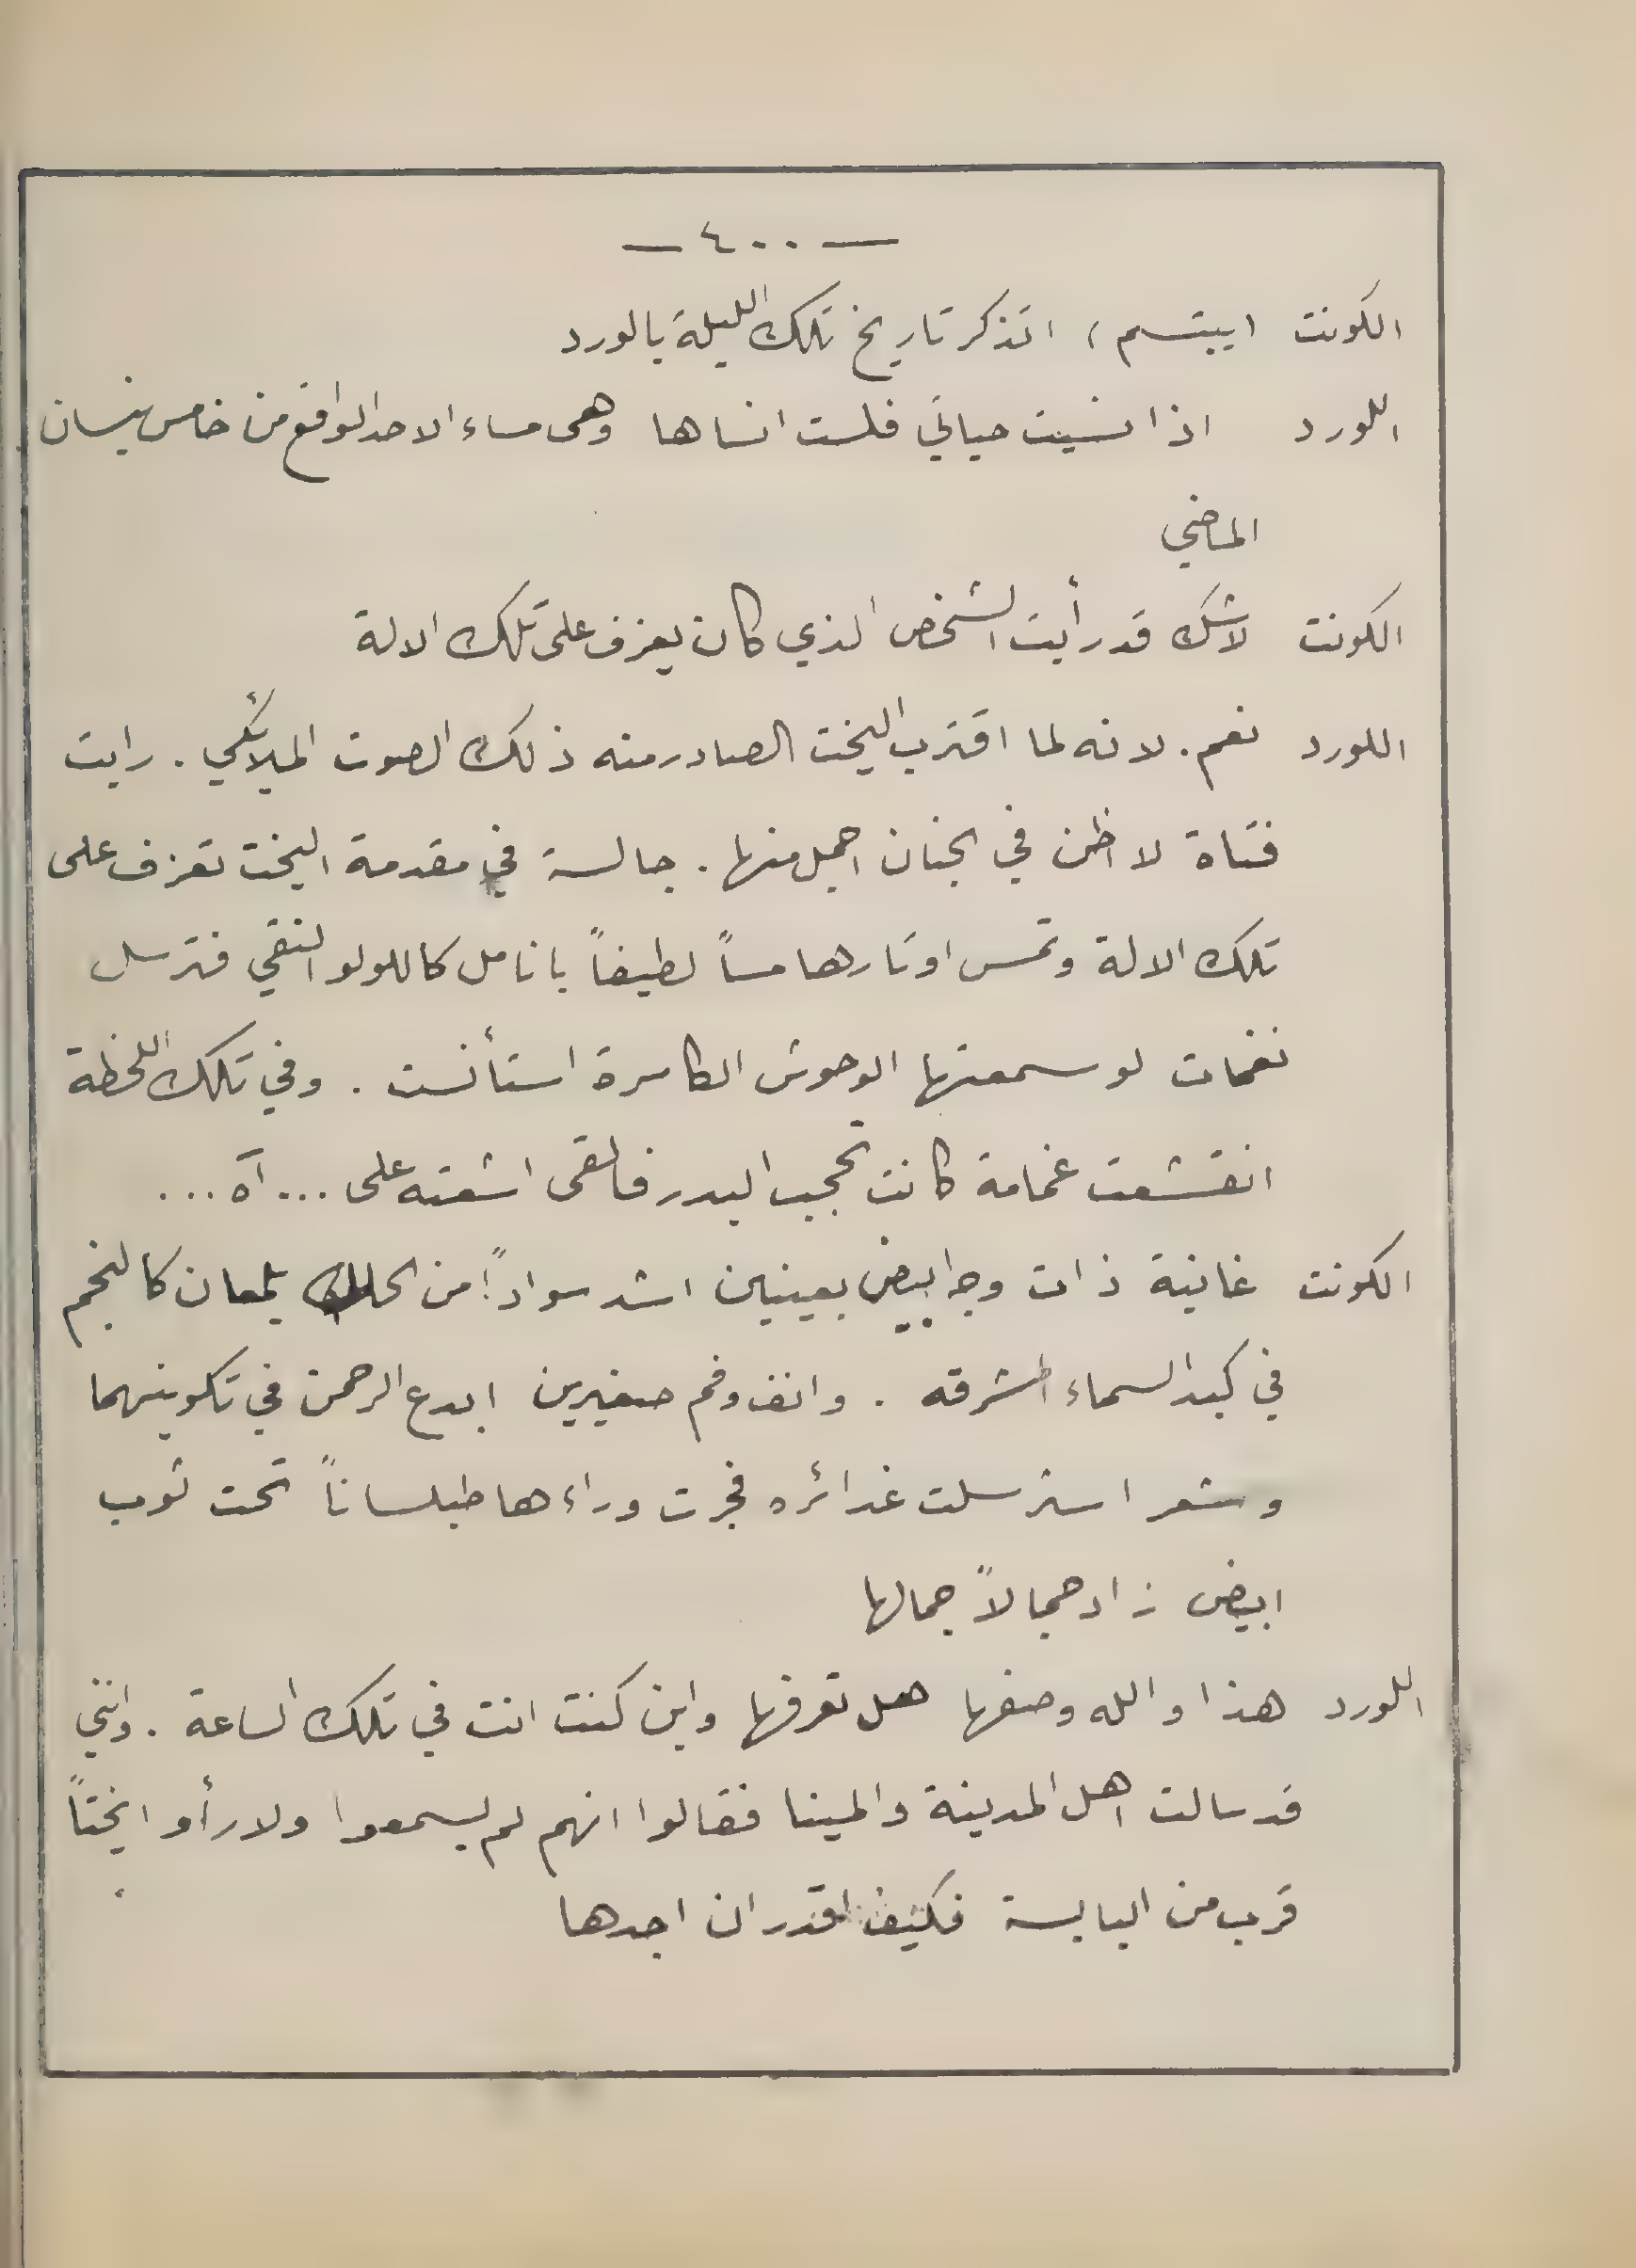 — ٤٠٠ —
الكونت (يبتسم) اتذكر تاريخ تلك الليلة يالورد
اللورد اذا نسيت حياتي فلست انساها وهى مساء الاحد الواقع من خامس نيسان
الماضي
الكونت لاشك قد رأيت الشخص الذي كان يعزف على تلك الالة
اللورد نعم. لانه لما اقترب اليخت الصادر منه ذلك الصوت الملائكي. رايت
فتاة لا اظن في الجنان اجمل منها. جالسة في مقدمة اليخت تعزف على
تلك الالة وتمس اوتارها مساً لطيفاً بانامل كاللولو النقي فترسل
نغمات لو سمعتها الوحوش الكاسرة استأنست. وفي تلك اللحظة
انقشعت غمامة كانت تحجب البدر فالقى اشعته على ... آه ...
الكونت غانية ذات وجه ابيض بعينين اشد سواداً من الحلك يلمعان كالنجم
في كبد السماء المشرقه. وانف وفم صغيرين ابدع الرحمن في تكوينهما
وشعر استرسلت غدائره فجرت وراءها طيلساناً تحت ثوب
ابيض زاد جمالاً جمالها
اللورد هذا والله وصفها هل تعرفها واين كنت انت في تلك الساعة. وانني
قد سالت اهل المدينة والمينا فقالوا انهم لم يسمعوا ولا رأوا يختاً
قرب من اليابسة فكيف اقدر ان اجدها